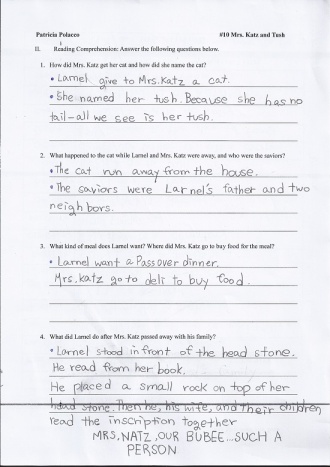 Patricia Polacco #10 Mrs. Katz and Tush
II. Reading Comprehension: Answer the following questions below.
1. How did Mrs. Katz get her cat and how did she name the cat?
• Larnel give to Mrs. Katz a cat.
• She named her tush. Because she has no
tail-all we see is her tush.
2. What happened to the cat while Larnel and Mrs. Katz were away, and who were the saviors?
• The cat run away from the house.
• The saviors were Larnel's father and two
neighbors.
3. What kind of meal does Larnel want? Where did Mrs. Katz go to buy food for the meal?
• Larnel want a Passover dinner.
Mrs. Katz go to deli to buy food.
4. What did Larnel do after Mrs. Katz passed away with his family?
• Larnel stood in front of the head stone.
He read from her book.
He placed a small rock on top of her
head stone. Then he, his wife, and their children
read the inscription together
MRS, NATZ, OUR BUBEE...SUCH A
PERSON